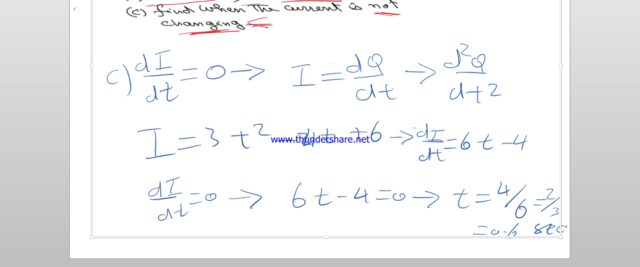 (c) find when the current is not
changing
c) dI/dt = 0 → I = dQ/dt → d²Q/dt2
I = 3t² - 4t + 6 → dI/dt = 6t - 4
www.thundershare.net
dI/dt = 0 → 6t - 4 = 0 → t = 4/6 = 2/3
= 0.6 sec